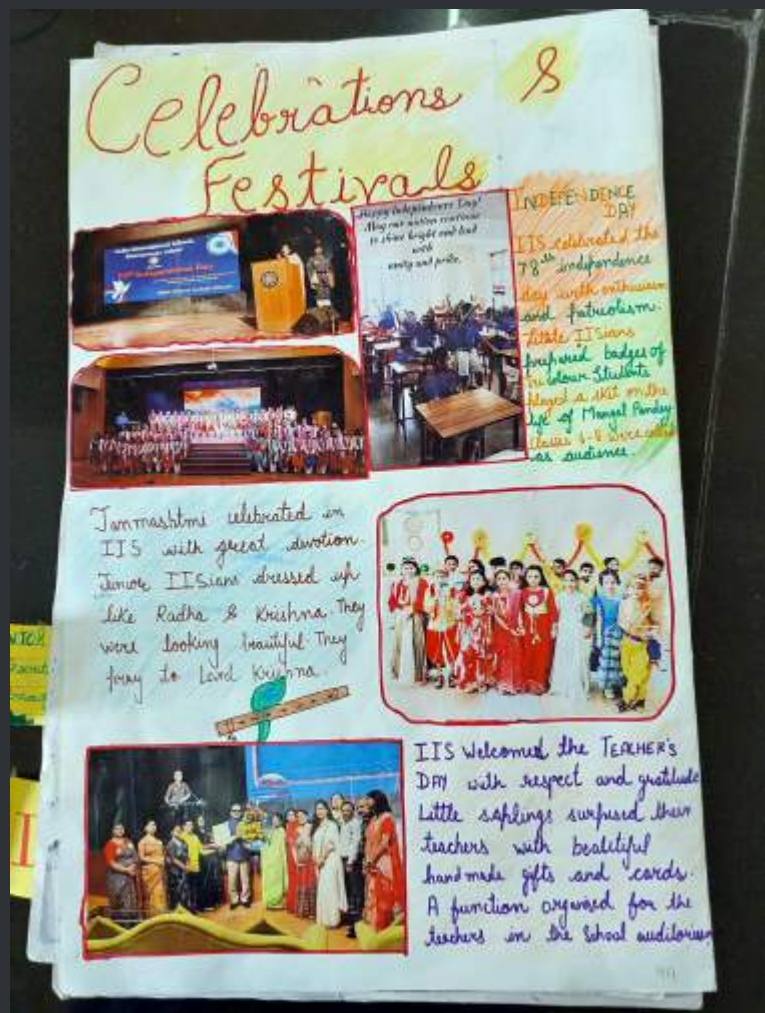 Celebrations &
Festivals
Happy Independence Day!
May our nation continue
to shine bright and lead
with
unity and pride.
INDEPENDENCE
DAY
IIS celebrated the
78th independence
day with enthusiasm
and patriotism.
little IISians
prepared badges of
tricolour Students
played a skit on the
life of Mangal Pandey
Classes 6-8 were
as audience.
Janmashtmi celebrated in
IIS with great devotion.
Junior IISians dressed up
like Radha & Krishna. They
were looking beautiful They
pray to Lord Krishna.
IIS Welcomed the TEACHER'S
DAY with respect and gratitude
Little saplings surprised their
teachers with beatiful
handmade gifts and cards.
A function organised for the
teachers in the School auditorium